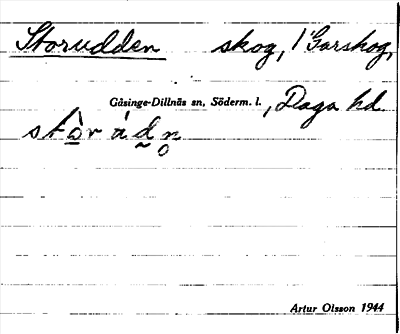 Storudden skog, 1 Garskog,
Gåsinge-Dillnäs sn, Söderm. l., Daga hd
stò̲r á d̰ n̥
Artur Olsson 1944